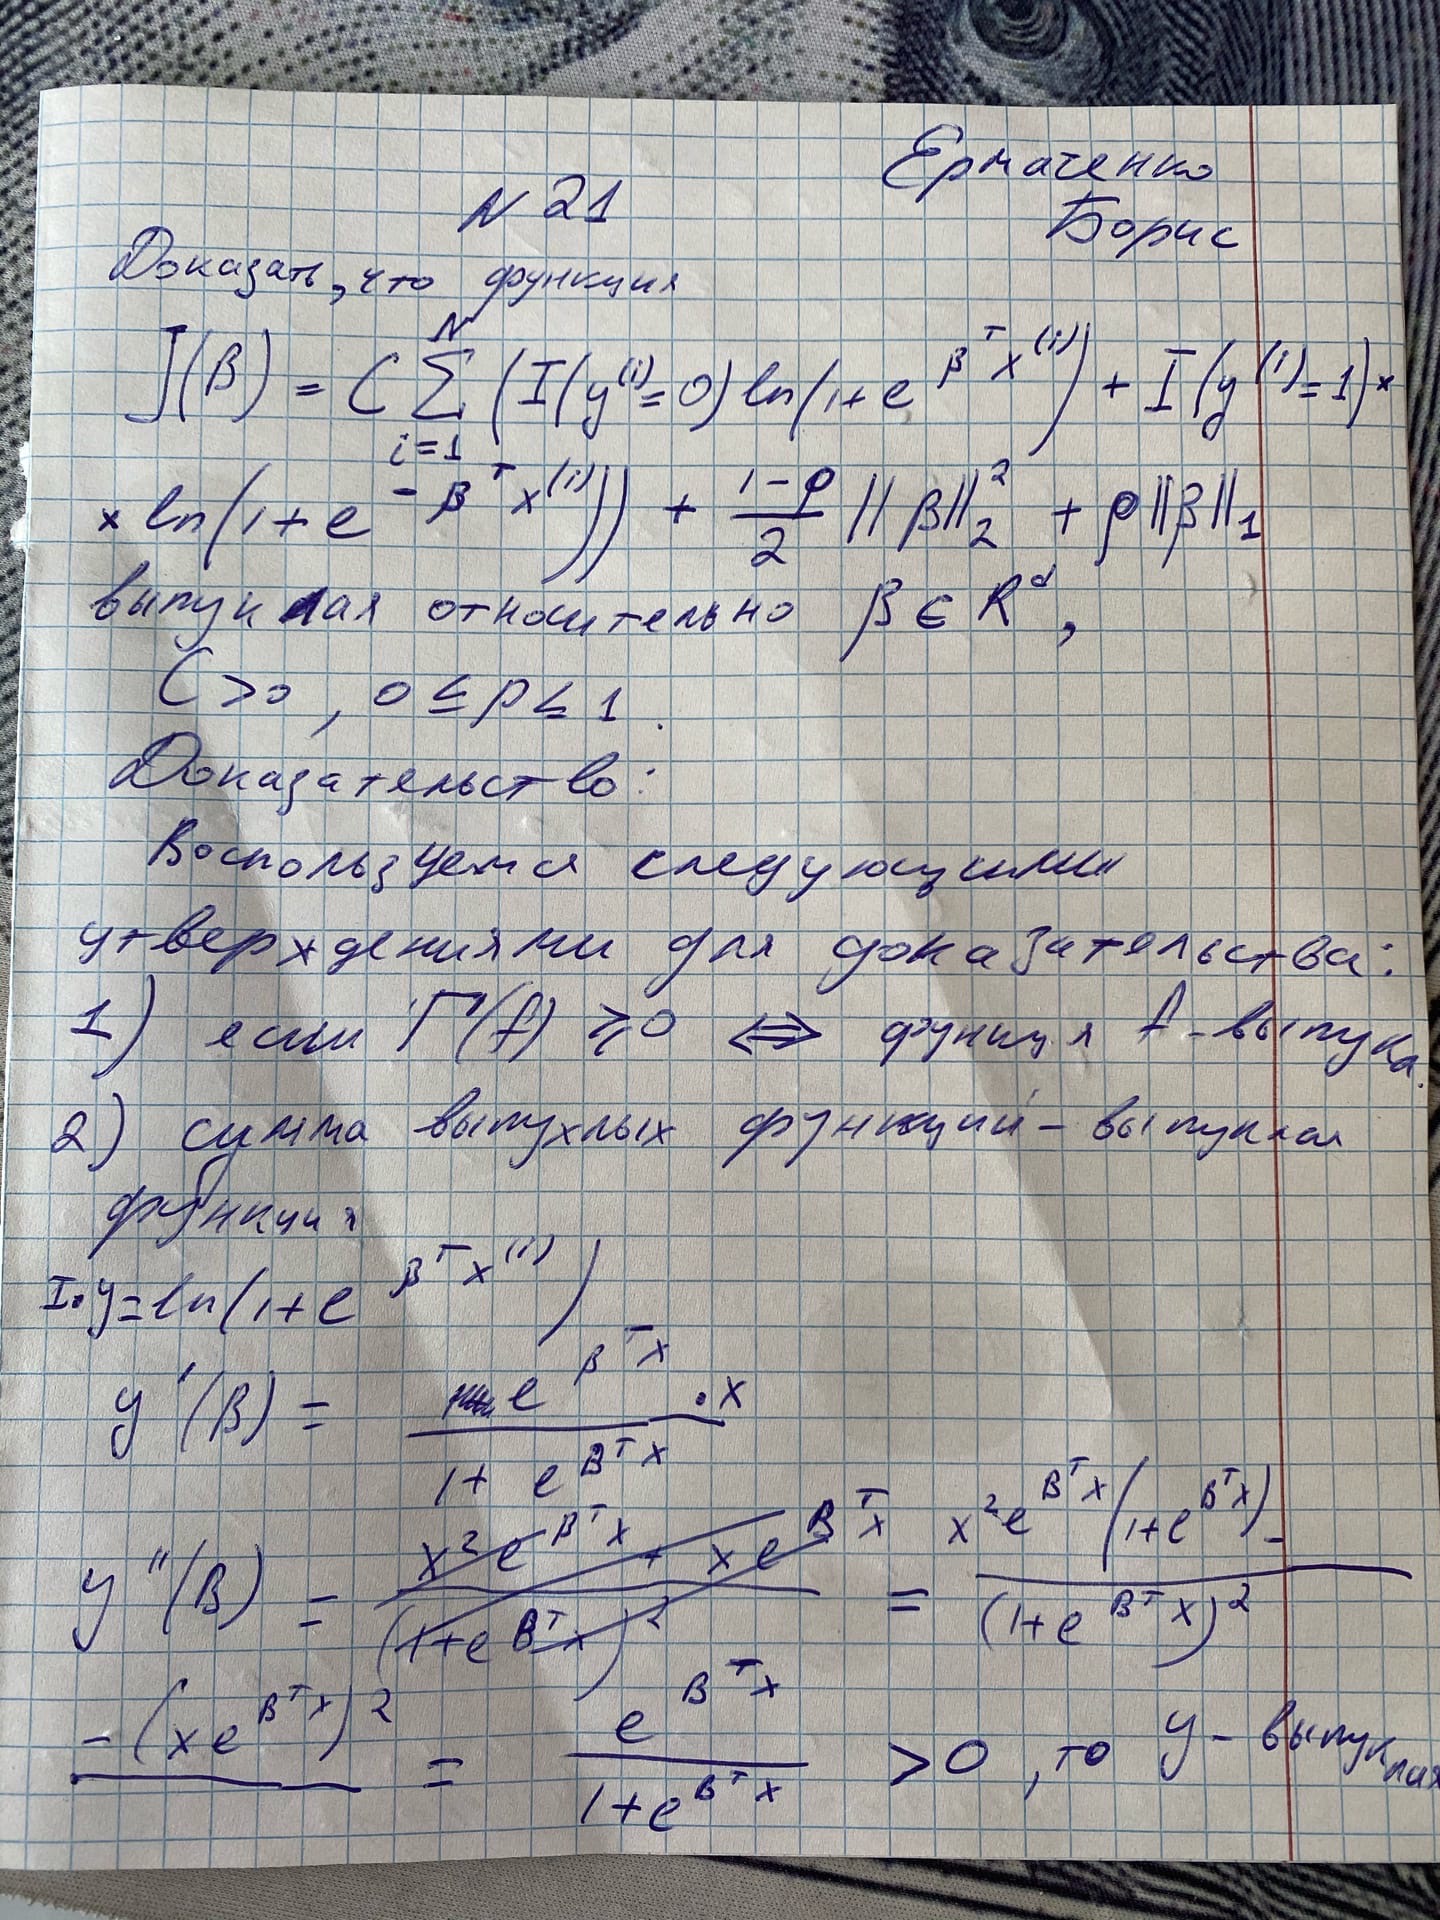 Ермаченко
Борис
N 21
Доказать, что функция
J(β) = C ∑_{i=1}^{N} (I(y^{(i)}=0) ln(1+e^{β^T x^{(i)}}) + I(y^{(i)}=1)×
× ln(1+e^{-β^T x^{(i)}})) + \frac{1-ρ}{2} ||β||_2^2 + ρ||β||_1
выпуклая относительно β ∈ R^d,
C>0, 0≤ρ≤1.
Доказательство:
Воспользуемся следующими
утверждениями для доказательства:
1) если Г(f) ≥0 ⇔ функция f-выпукла.
2) сумма выпухлых функций - выпуклая
функция
I. y=ln(1+e^{β^T x^{(i)}})
y'(β) = \frac{e^{β^T x}·x}{1+e^{β^T x}}
y''(β) = \frac{x^2e^{β^T x} + xe^{β^T x}}{(1+e^{β^T x})^2} = \frac{x^2e^{β^T x}(1+e^{β^T x})-}{(1+e^{β^T x})^2}
-(xe^{β^T x})^2 = \frac{e^{β^T x}}{1+e^{β^T x}} >0, то y - выпуклая